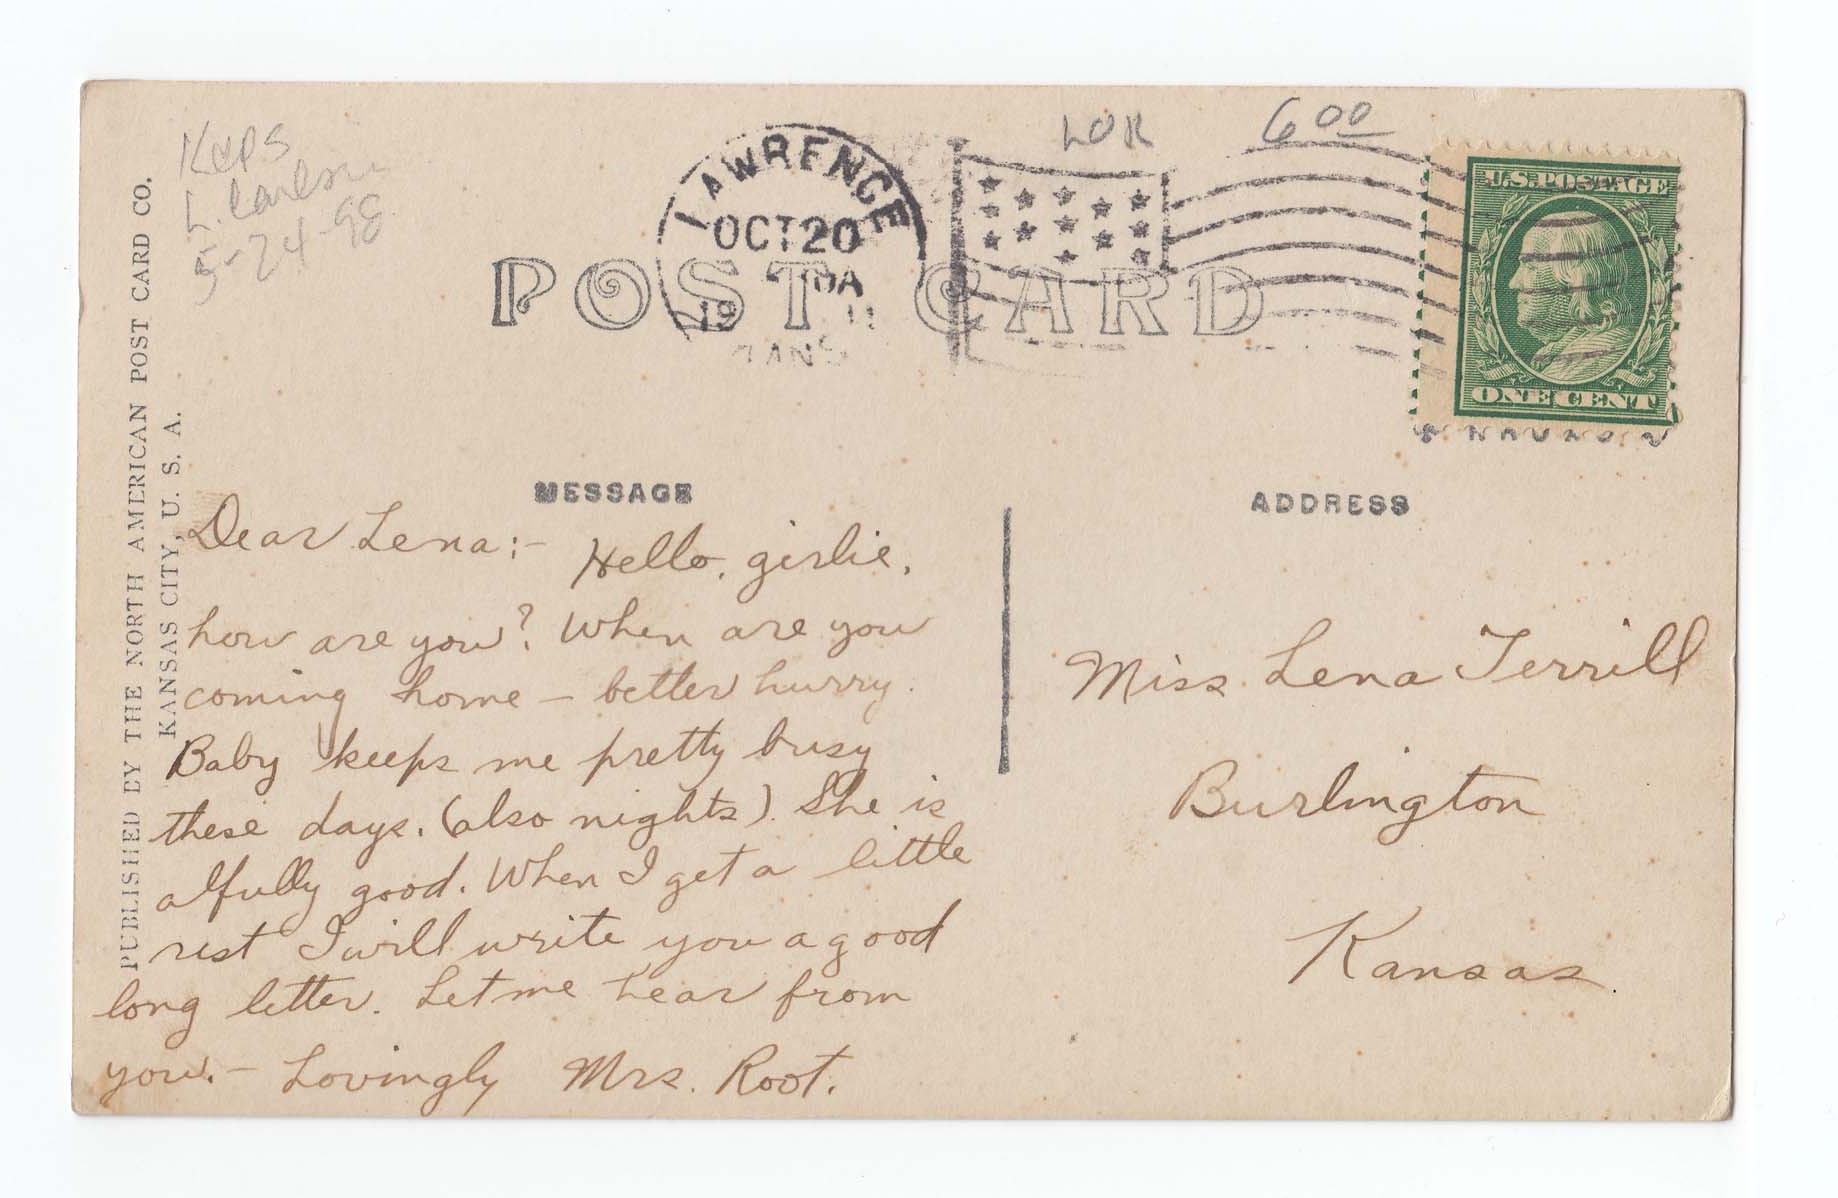 Keps
L. Carlson
5-24-98
LOR
6 00
LAWRENCE
OCT 20
19 11
KANS
U.S. POSTAGE
ONE CENT
POST CARD
PUBLISHED BY THE NORTH AMERICAN POST CARD CO.
KANSAS CITY, U. S. A.
MESSAGE
Dear Lena:- Hello, girlie,
how are you? When are you
coming home – better hurry.
Baby keeps me pretty busy
these days. (also nights). She is
alfully good. When I get a little
rest I will write you a good
long letter. Let me hear from
you. – Lovingly Mrs. Root.
ADDRESS
Miss Lena Terrill
Burlington
Kansas.